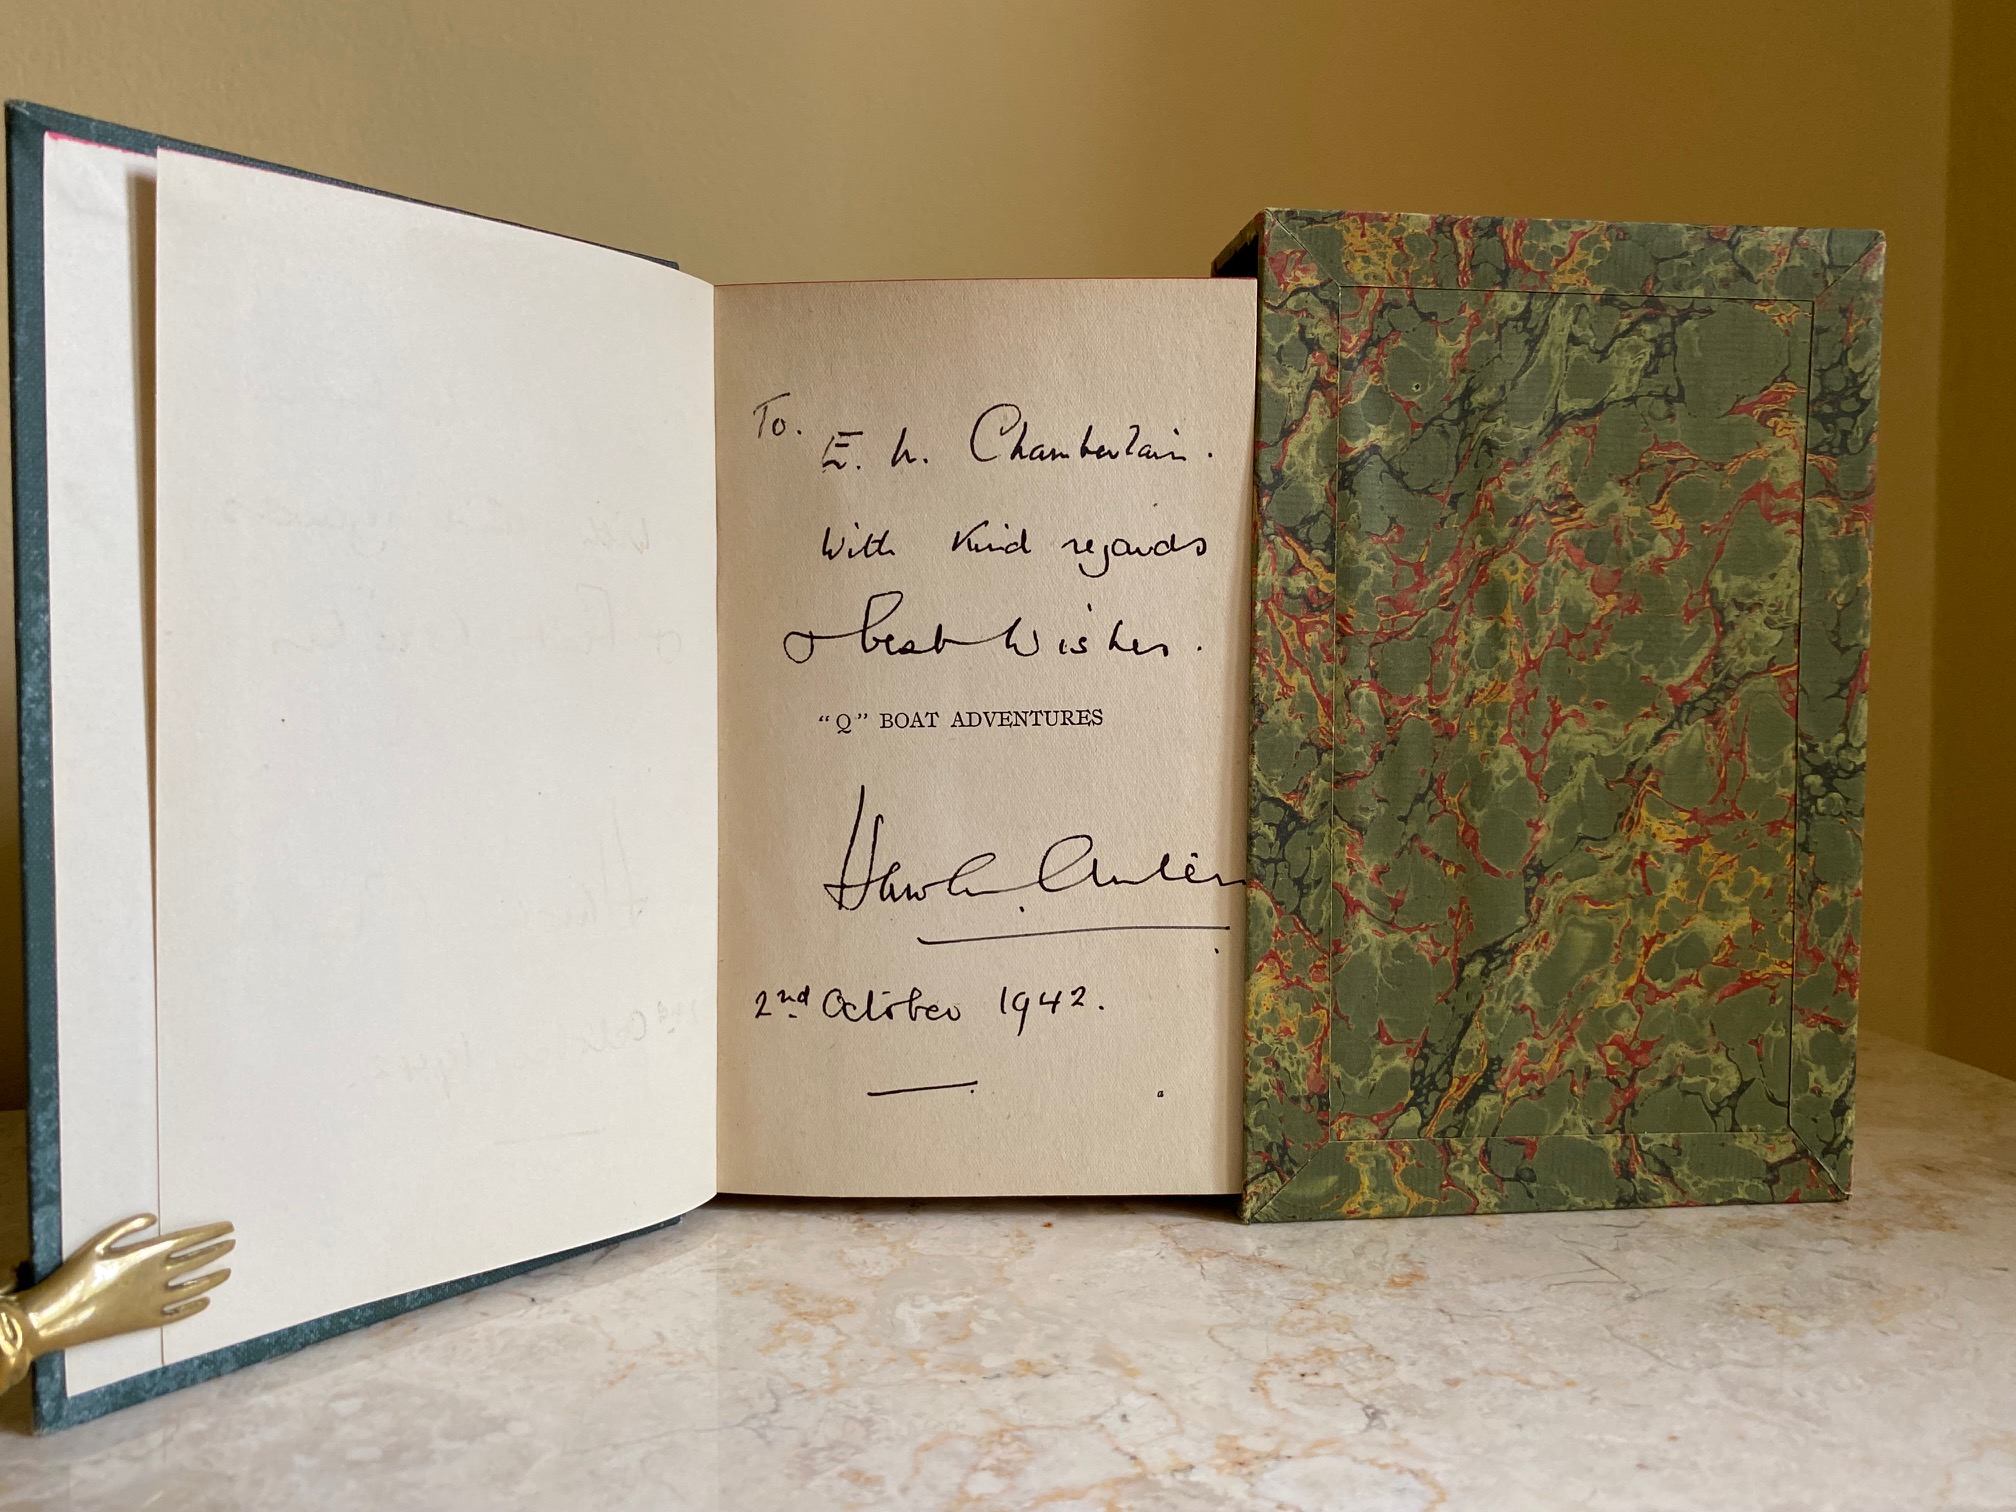 To.
E. W. Chamberlain.
With Kind regards
& best wishes.
“Q” BOAT ADVENTURES
Harold Auten
2nd October 1942.
a